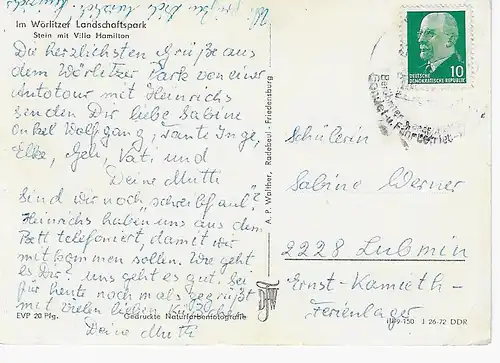 Im Wörlitzer Landschaftspark
Stein mit Villa Hamilton
Die herzlichsten Grüße aus
dem Wörlitzer Park von einer
Autotour mit Heinrichs
senden Dir liebe Sabine
Onkel Wolfgang, Tante Inge,
Elke, Vati und
Deine Mutti
Sind wir noch "schreibfaul"?
Heinrichs haben uns aus dem
Bett telefoniert, damit wir
mitkommen sollen. Wie geht
es Dir? Uns geht es gut. Sei
für heute nochmals gegrüßt
mit vielen lieben Küßchen
Deine Mutti
EVP 20 Pfg. Gedruckte Naturfarbenfotografie
A. P. Walther, Radebeul - Friedensburg
DEUTSCHE
DEMOKRATISCHE REPUBLIK
10
Schülerin
Sabine Werner
2228 Lubmin
Ernst-Kamieth-
Ferienlager
J 26-72 DDR